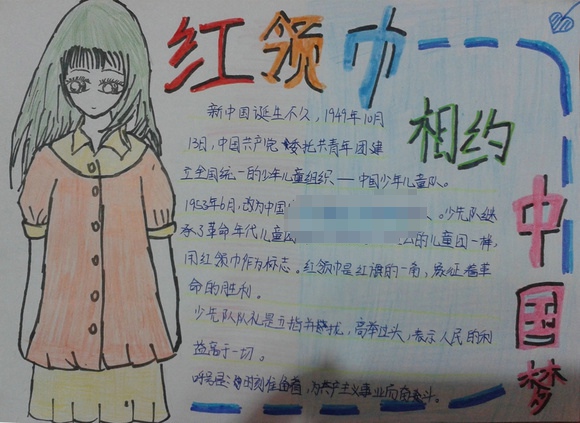 红领巾
相约
中国梦
新中国诞生不久，1949年10月
13日，中国共产党委托共青年团建
立全国统一的少年儿童组织——中国少年儿童队。
1953年6月，改为中国 。少先队继
承了革命年代儿童团 的儿童团一样，
用红领巾作为标志。红领巾是红旗的一角，象征着革
命的胜利。
少先队队礼是五指并拢，高举过头，表示人民的利
益高于一切。
呼号是：时刻准备着，为共产主义事业而奋斗。